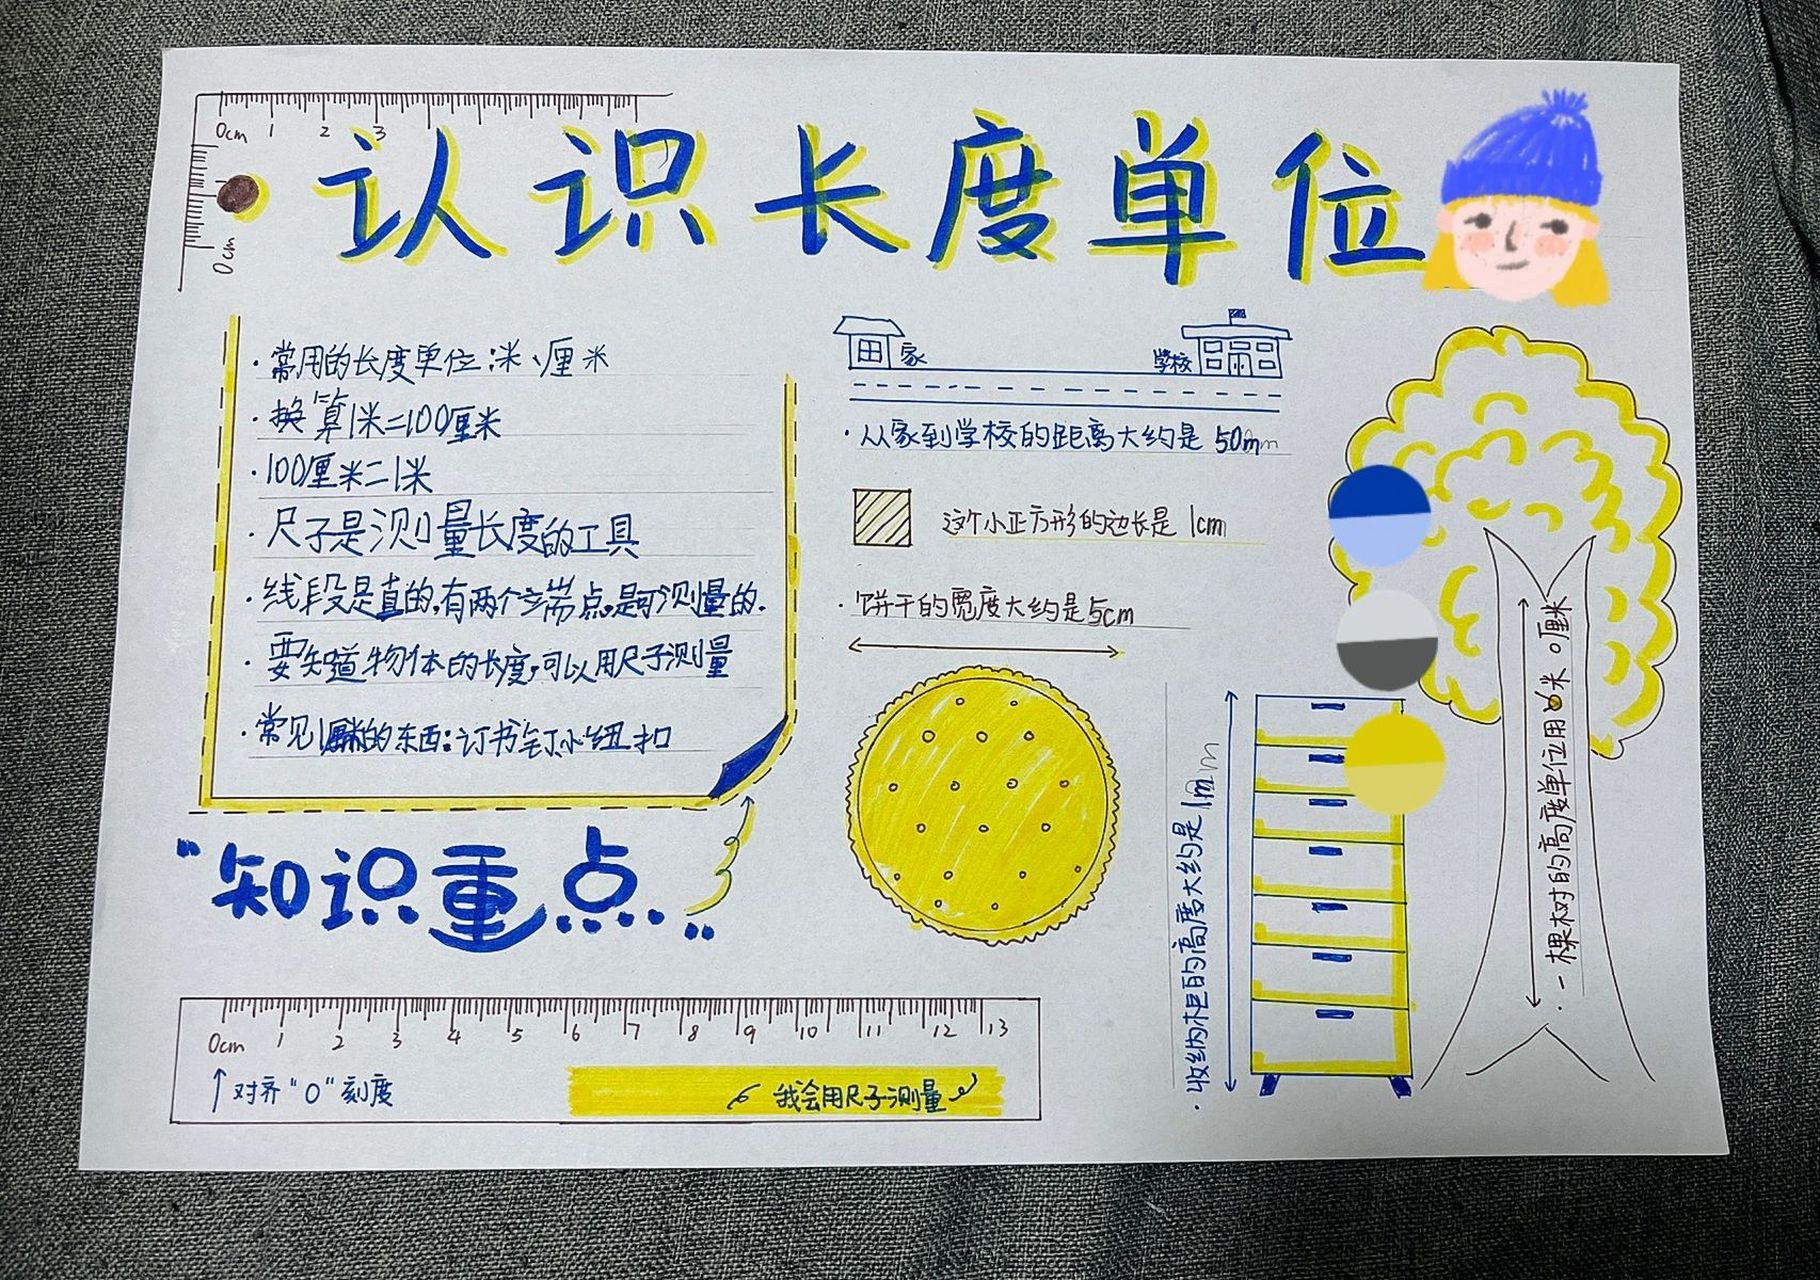 0cm 1 2 3
0cm
认识长度单位
·常用的长度单位:米、厘米
·换算1米=100厘米
·100厘米=1米
·尺子是测量长度的工具
·线段是直的,有两个端点,是可测量的.
·要知道物体的长度,可以用尺子测量
·常见1厘米的东西:订书钉、小纽扣
"知识重点"
家
学校
·从家到学校的距离大约是50m
这个小正方形的边长是1cm
·饼干的宽度大约是5cm
·收纳柜的高度大约是1m
·一棵树的高度单位用 米 厘米
0cm 1 2 3 4 5 6 7 8 9 10 11 12 13
对齐"0"刻度
我会用尺子测量